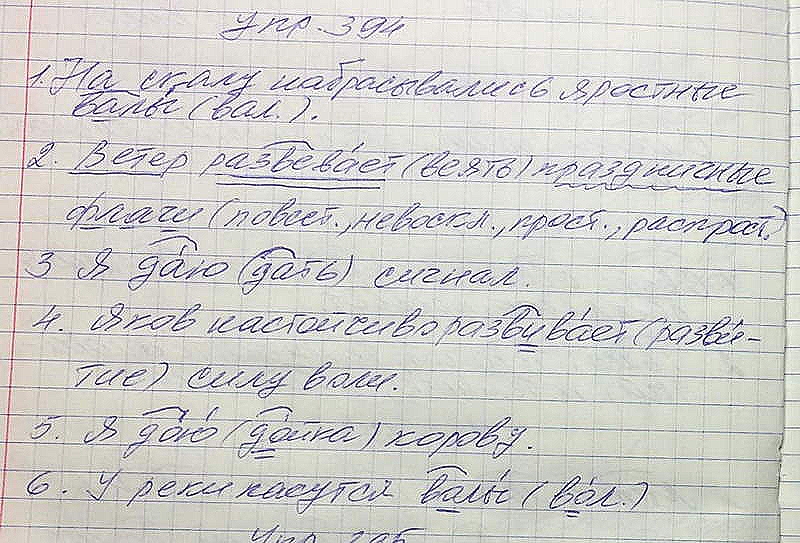 Упр. 394
1. На скалу набрасывались яростные
валы (вал.).
2. Ветер развевает (веять) праздничные
флаги (повест., невоскл., прост., распрост.)
3 Я даю (дать) сигнал.
4. Яков настойчиво развивает (разви-
тие) силу воли.
5. Я даю (дойка) корову.
6. У реки пасутся валы (вол.)
Упр. 395